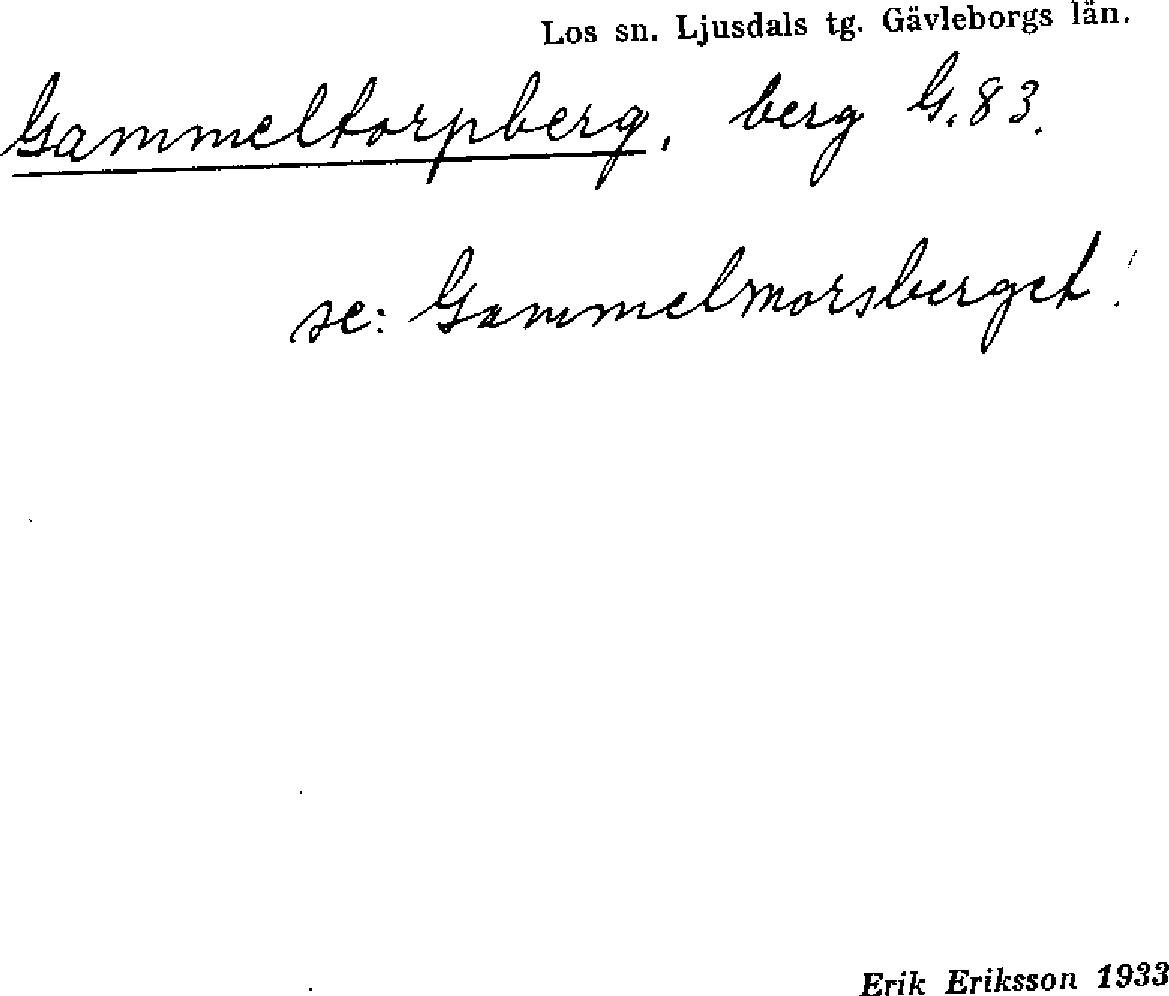 Los sn. Ljusdals tg. Gävleborgs län.
Gammeltorpberg, berg G.83.
se: Gammelmorsberget!
Erik Eriksson 1933